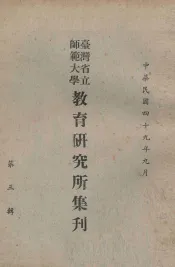 中華民國四十九年九月
臺灣省立
師範大學
教育研究所集刊
第三輯